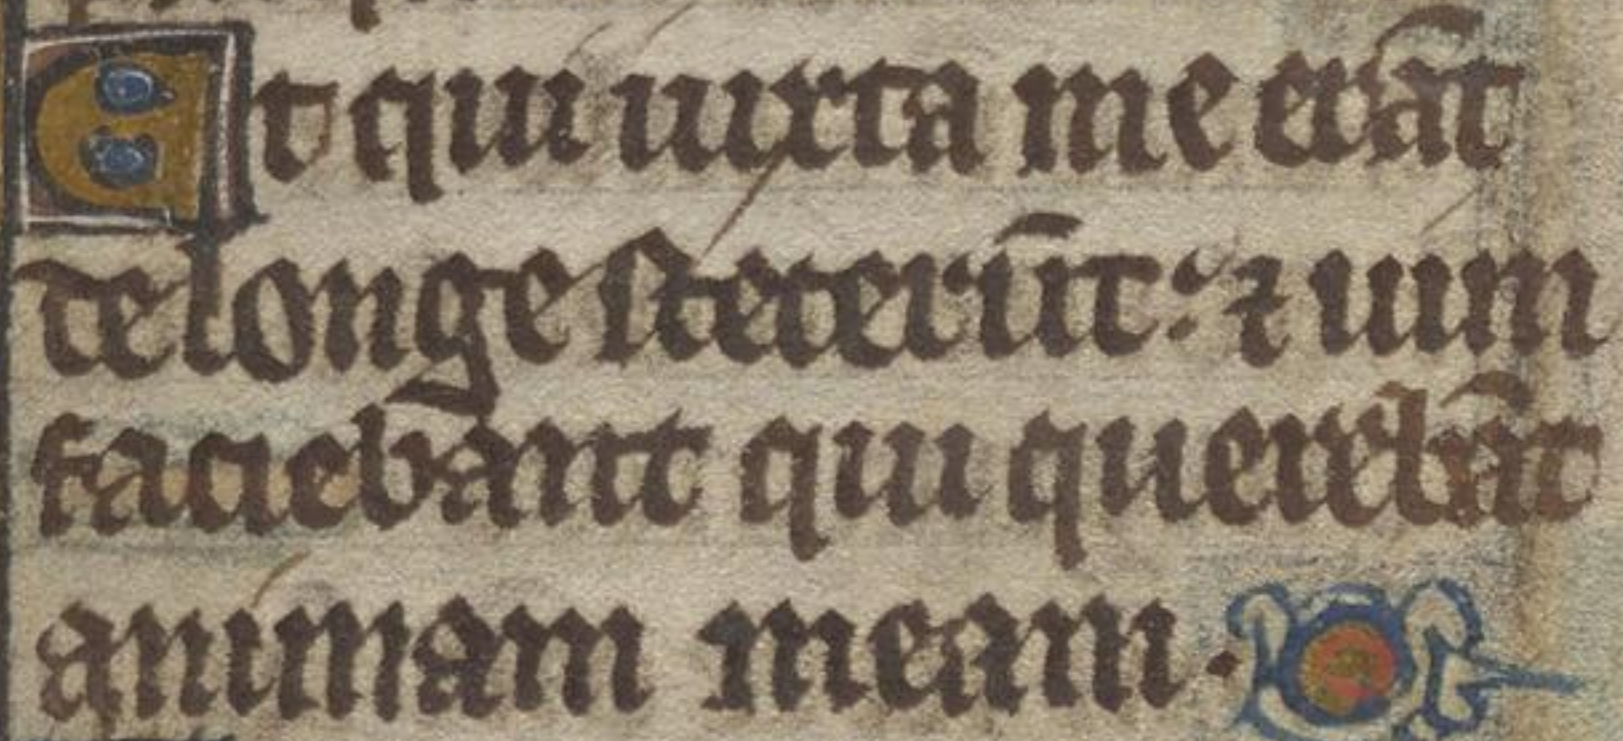 Et qui iuxta me erāt
de longe steterūt: ⁊ uim
faciebant qui querebāt
animam meam.